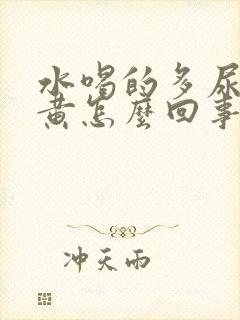 水喝的多尿
黄怎麼回事
冲天雨